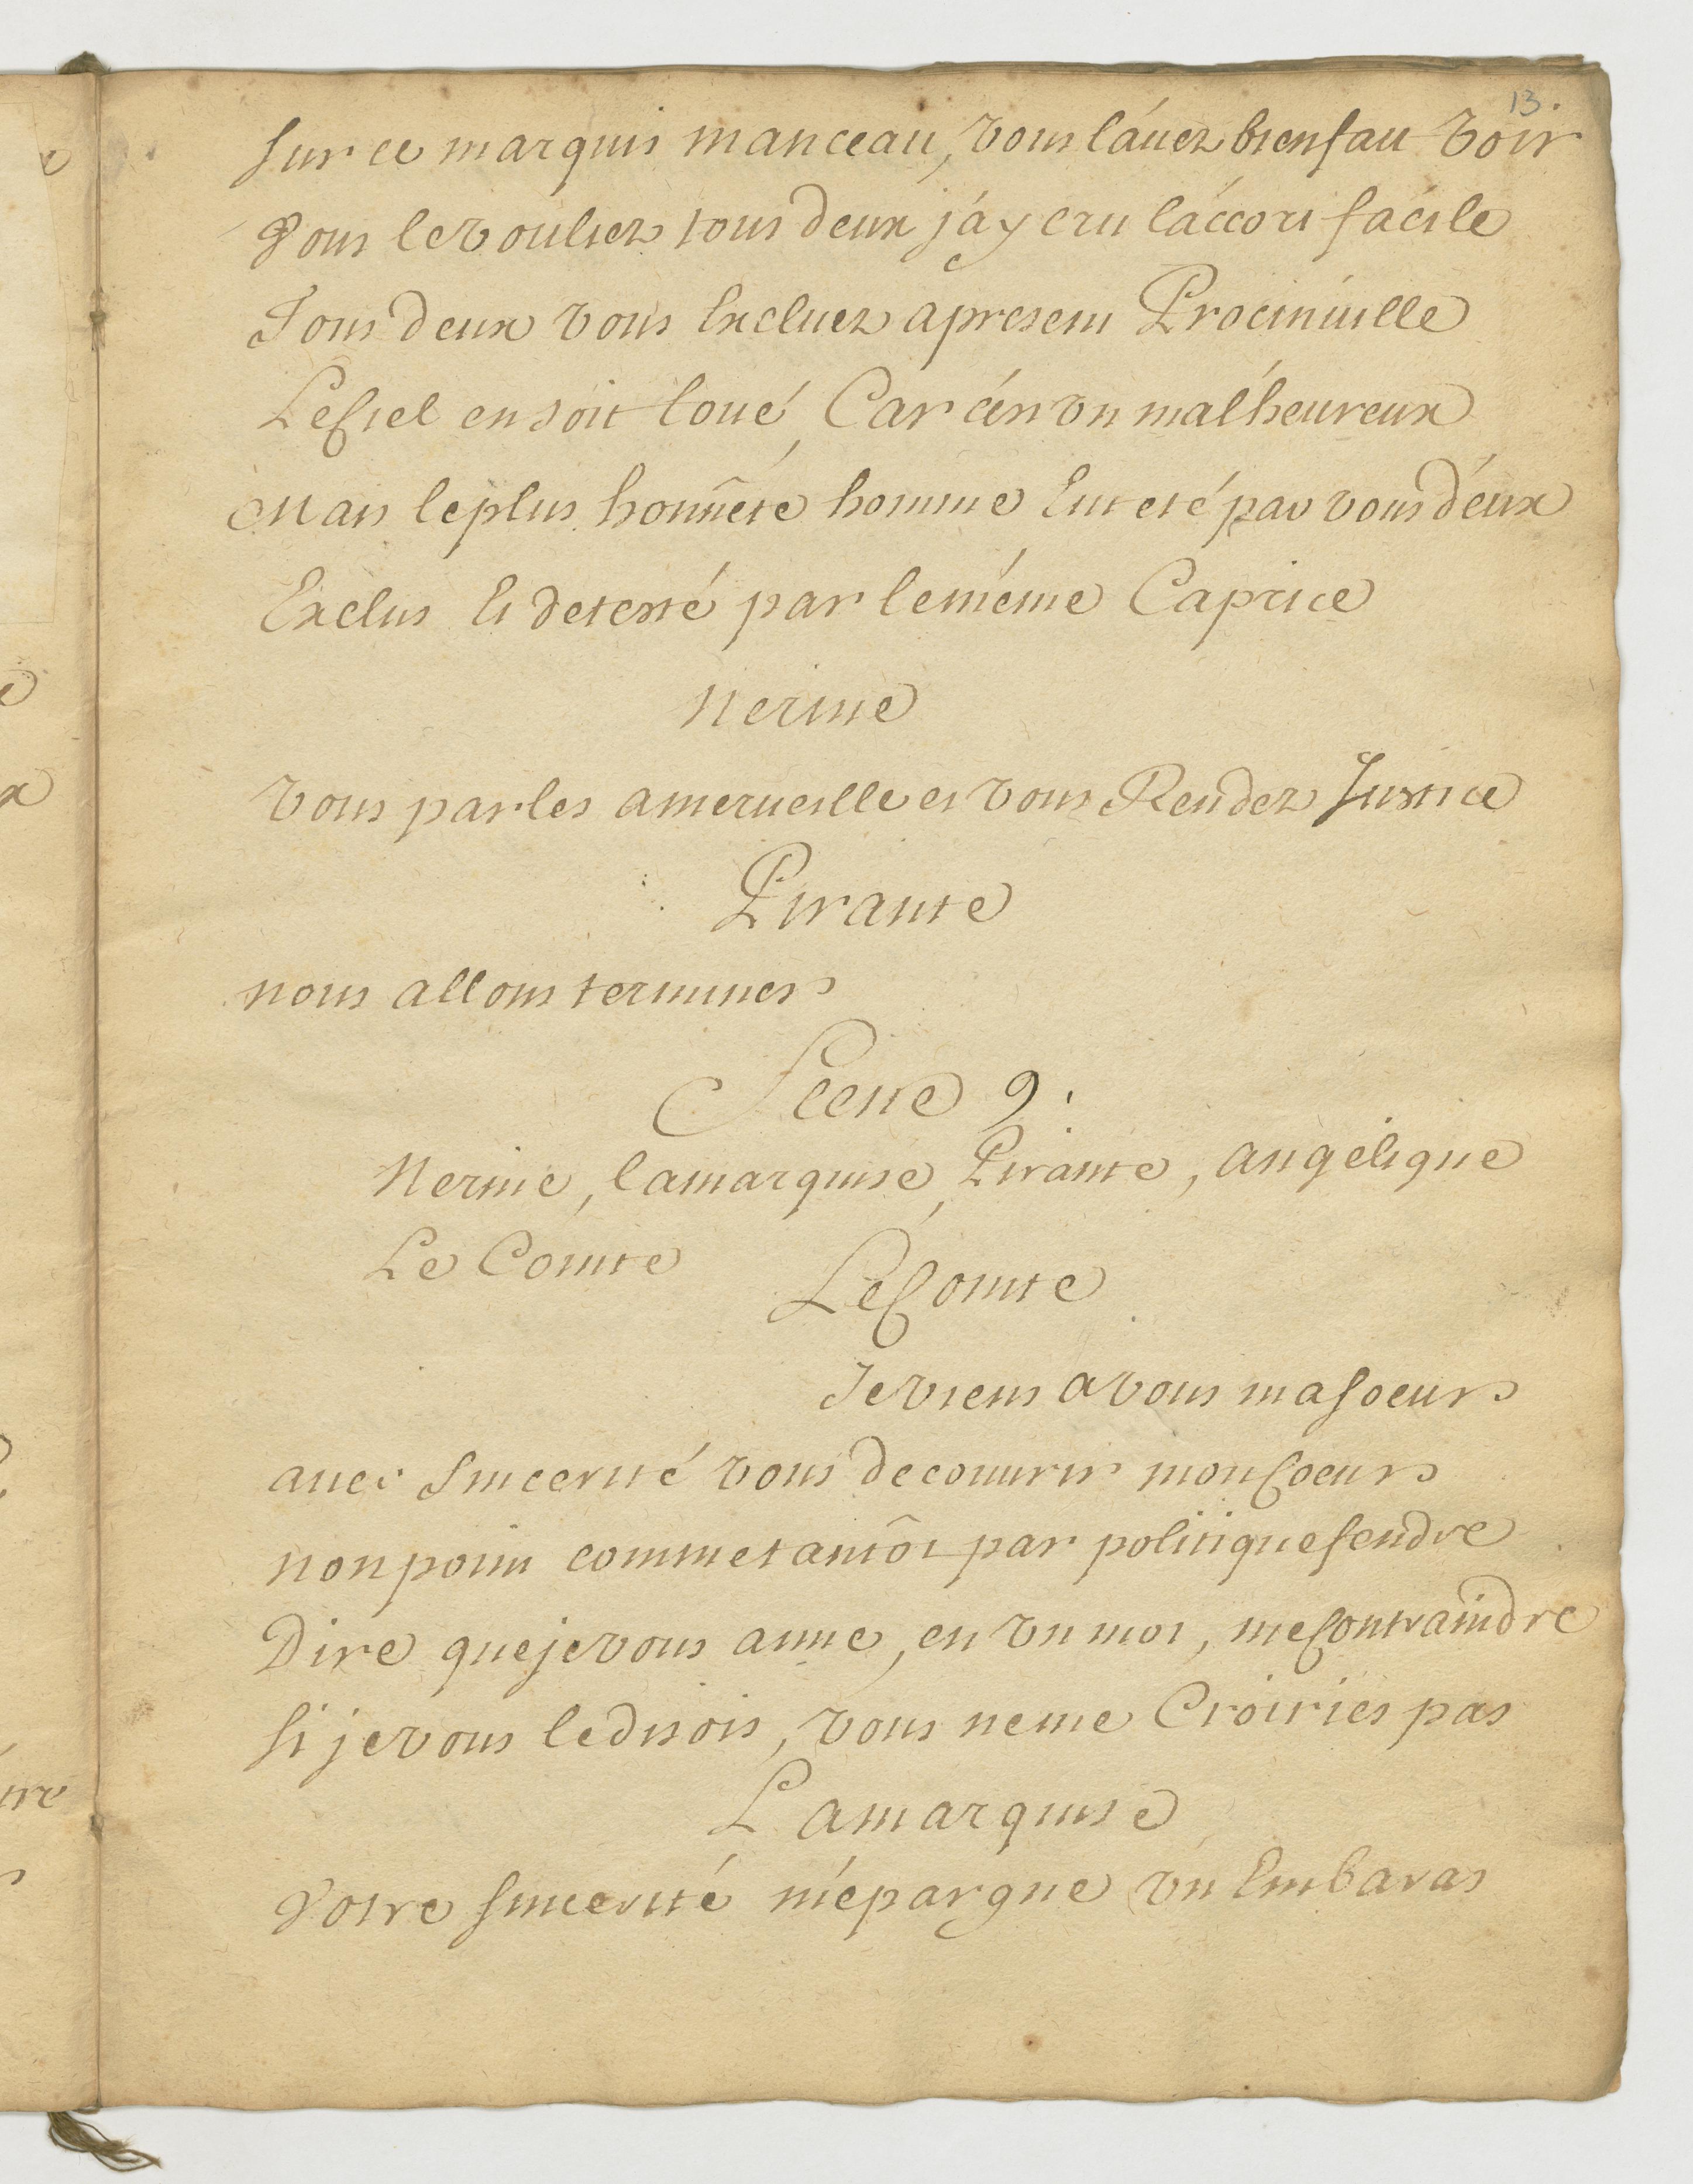 13.
sur ce marquis manceau, vous l'auez bien fait voir
Vous le vouliez tous deux j'ay cru l'accort facile
Tous deux vous Excluez apresent Procinuille
Le Ciel en soit loué, Car c'est un malheureux
Mais le plus honnête homme Eut eté par vous deux
Exclus Et detesté par le même Caprice
Nerine
vous parles a merueille et vous Rendez Justice
Pirante
nous allons terminer
Scene 9.
Nerine, la marquise, Pirante, angélique
Le Comte
Le Comte
Je viens a vous ma soeur
auec sincerité vous decouurir mon Coeur
non point comme tantôt par politique feindre
Dire que je vous aime, en un mot, me Contraindre
si je vous le disois, vous ne me Croiries pas
La marquise
Votre sincerité m'épargne un Embaras